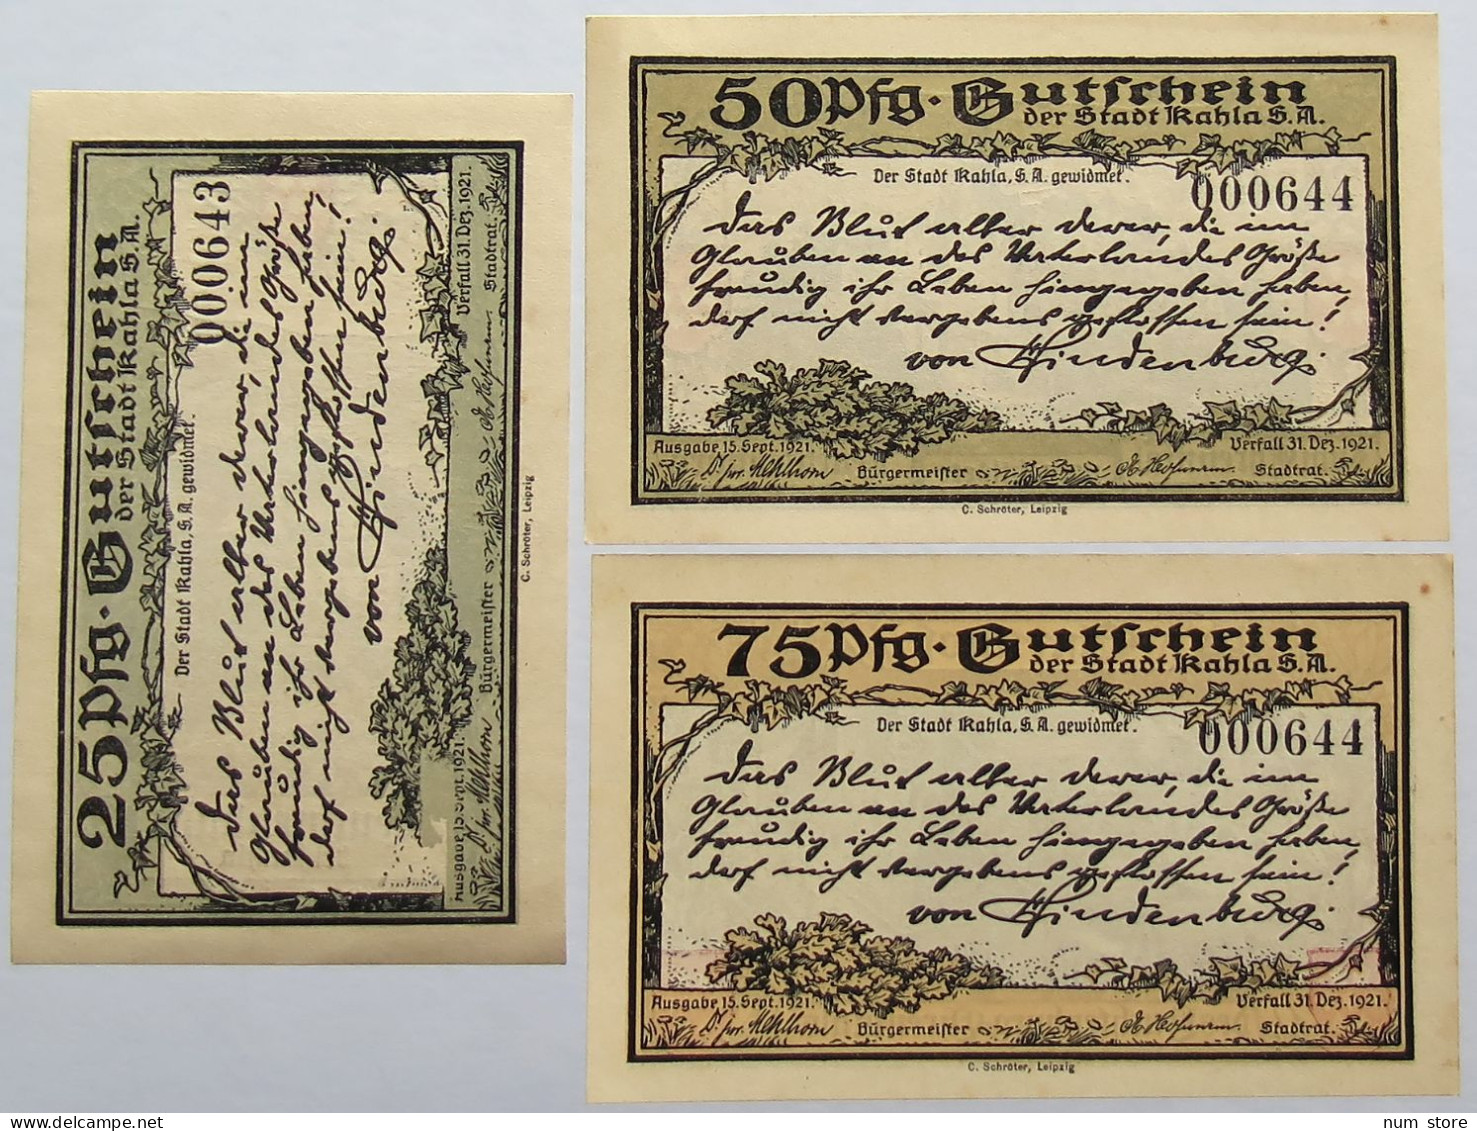 25 Pfg. Gutschein
der Stadt Kahla S.A.
Der Stadt Kahla, S.A. gewidmet.
000643
Das Blut aller derer, die im
Glauben an des Vaterlandes Größe
freudig ihr Leben hingegeben haben,
darf nicht vergebens geflossen sein!
von Hindenburg.
Ausgabe 15. Sept. 1921. Verfall 31. Dez. 1921.
Dr. jur. Mehlhorn Bürgermeister Stadtrat.
C. Schröter, Leipzig
50 Pfg. Gutschein
der Stadt Kahla S.A.
Der Stadt Kahla, S.A. gewidmet.
000644
Das Blut aller derer, die im
Glauben an des Vaterlandes Größe
freudig ihr Leben hingegeben haben,
darf nicht vergebens geflossen sein!
von Hindenburg.
Ausgabe 15. Sept. 1921. Verfall 31. Dez. 1921.
Dr. jur. Mehlhorn Bürgermeister Stadtrat.
C. Schröter, Leipzig
75 Pfg. Gutschein
der Stadt Kahla S.A.
Der Stadt Kahla, S.A. gewidmet.
000644
Das Blut aller derer, die im
Glauben an des Vaterlandes Größe
freudig ihr Leben hingegeben haben,
darf nicht vergebens geflossen sein!
von Hindenburg.
Ausgabe 15. Sept. 1921. Verfall 31. Dez. 1921.
Dr. jur. Mehlhorn Bürgermeister Stadtrat.
C. Schröter, Leipzig
num store